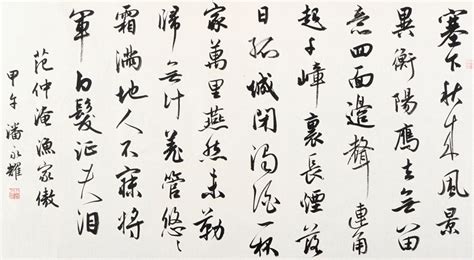 塞下秋来風景
異衡陽鴈去无留
意四面邊聲連角
起千嶂裏長煙落
日孤城閉濁酒一杯
家萬里燕然未勒
歸无計羌管悠〻
霜滿地人不寐將
軍白髮征夫泪
范仲淹漁家傲
甲午潘永耀